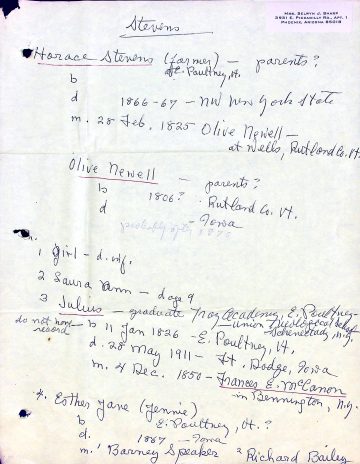 Stevens
MRS. SELWYN J. SHARP
3931 E. PICCADILLY RD., APT. 1
PHOENIX, ARIZONA 85018
Horace Stevens (farmer) — parents?
of E. Poultney, Vt.
b
d 1866-67 — NW New York State
m. 28 Feb. 1825 Olive Newell —
at Wells, Rutland Co. Vt.
Olive Newell — parents?
b 1806? Rutland Co. Vt.
d — Iowa
probably after 1870
m.
1 girl — d. inf.
2 Laura Ann — d age 9
3 Julius — graduate Troy Academy, E. Poultney —
Union Theological
Schenectady, N.Y.
do not have
record
b 11 Jan 1826 — E. Poultney, Vt.
d. 28 May 1911 — Ft. Dodge, Iowa
m. 4 Dec. 1850 — Frances E. McCanon
in Bennington, N.Y.
4. Esther Jane (Jennie)
b E. Poultney, Vt. ?
d. 1867 — Iowa
m. ¹ Barney Speaker ² Richard Bailey